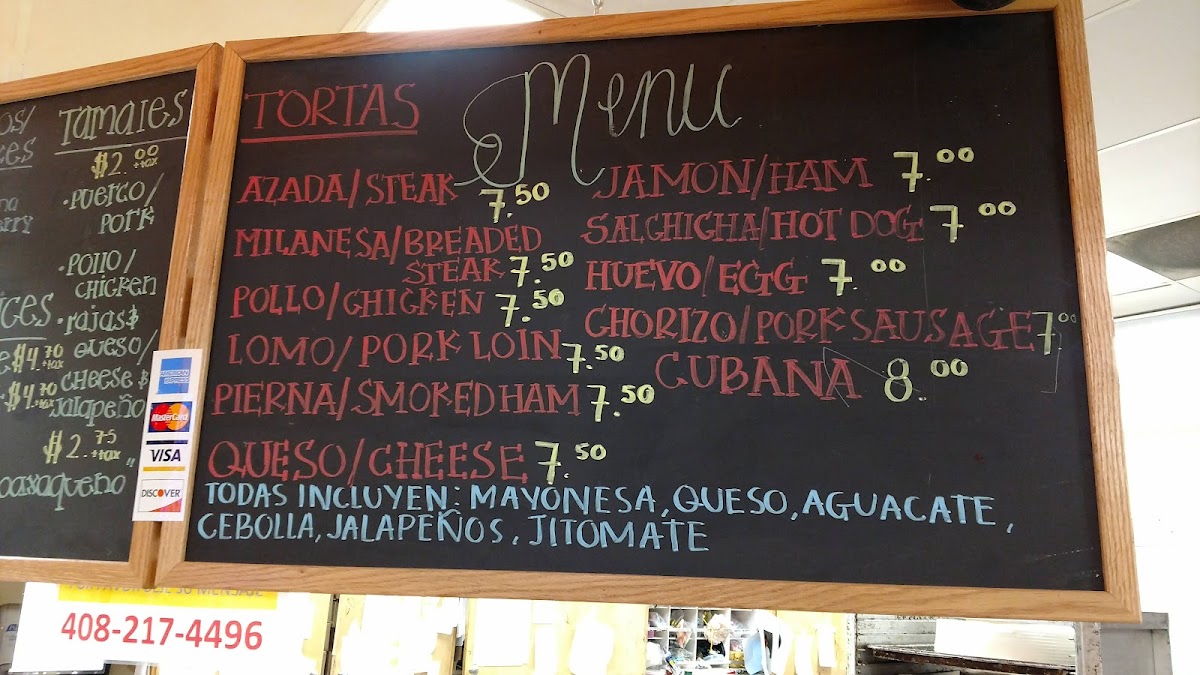 Tamales
$2.00 +tax
• Puerco/
Pork
• Pollo/
Chicken
• rajas $
queso/
cheese $
Jalapeño
$2.75 +tax
oaxaqueño"
$4.70 +tax
$4.70 +tax
AMERICAN EXPRESS
MasterCard
VISA
DISCOVER
Menu
TORTAS
AZADA/STEAK 7.50
MILANESA/BREADED
STEAK 7.50
POLLO/CHICKEN 7.50
LOMO/PORK LOIN 7.50
PIERNA/SMOKED HAM 7.50
QUESO/CHEESE 7.50
JAMON/HAM 7.00
SALCHIGHA/HOT DOG 7.00
HUEVO/EGG 7.00
CHORIZO/PORK SAUSAGE 7.00
CUBANA 8.00
TODAS INCLUYEN: MAYONESA, QUESO, AGUACATE,
CEBOLLA, JALAPEÑOS, JITOMATE
SU MENSAJE
408-217-4496